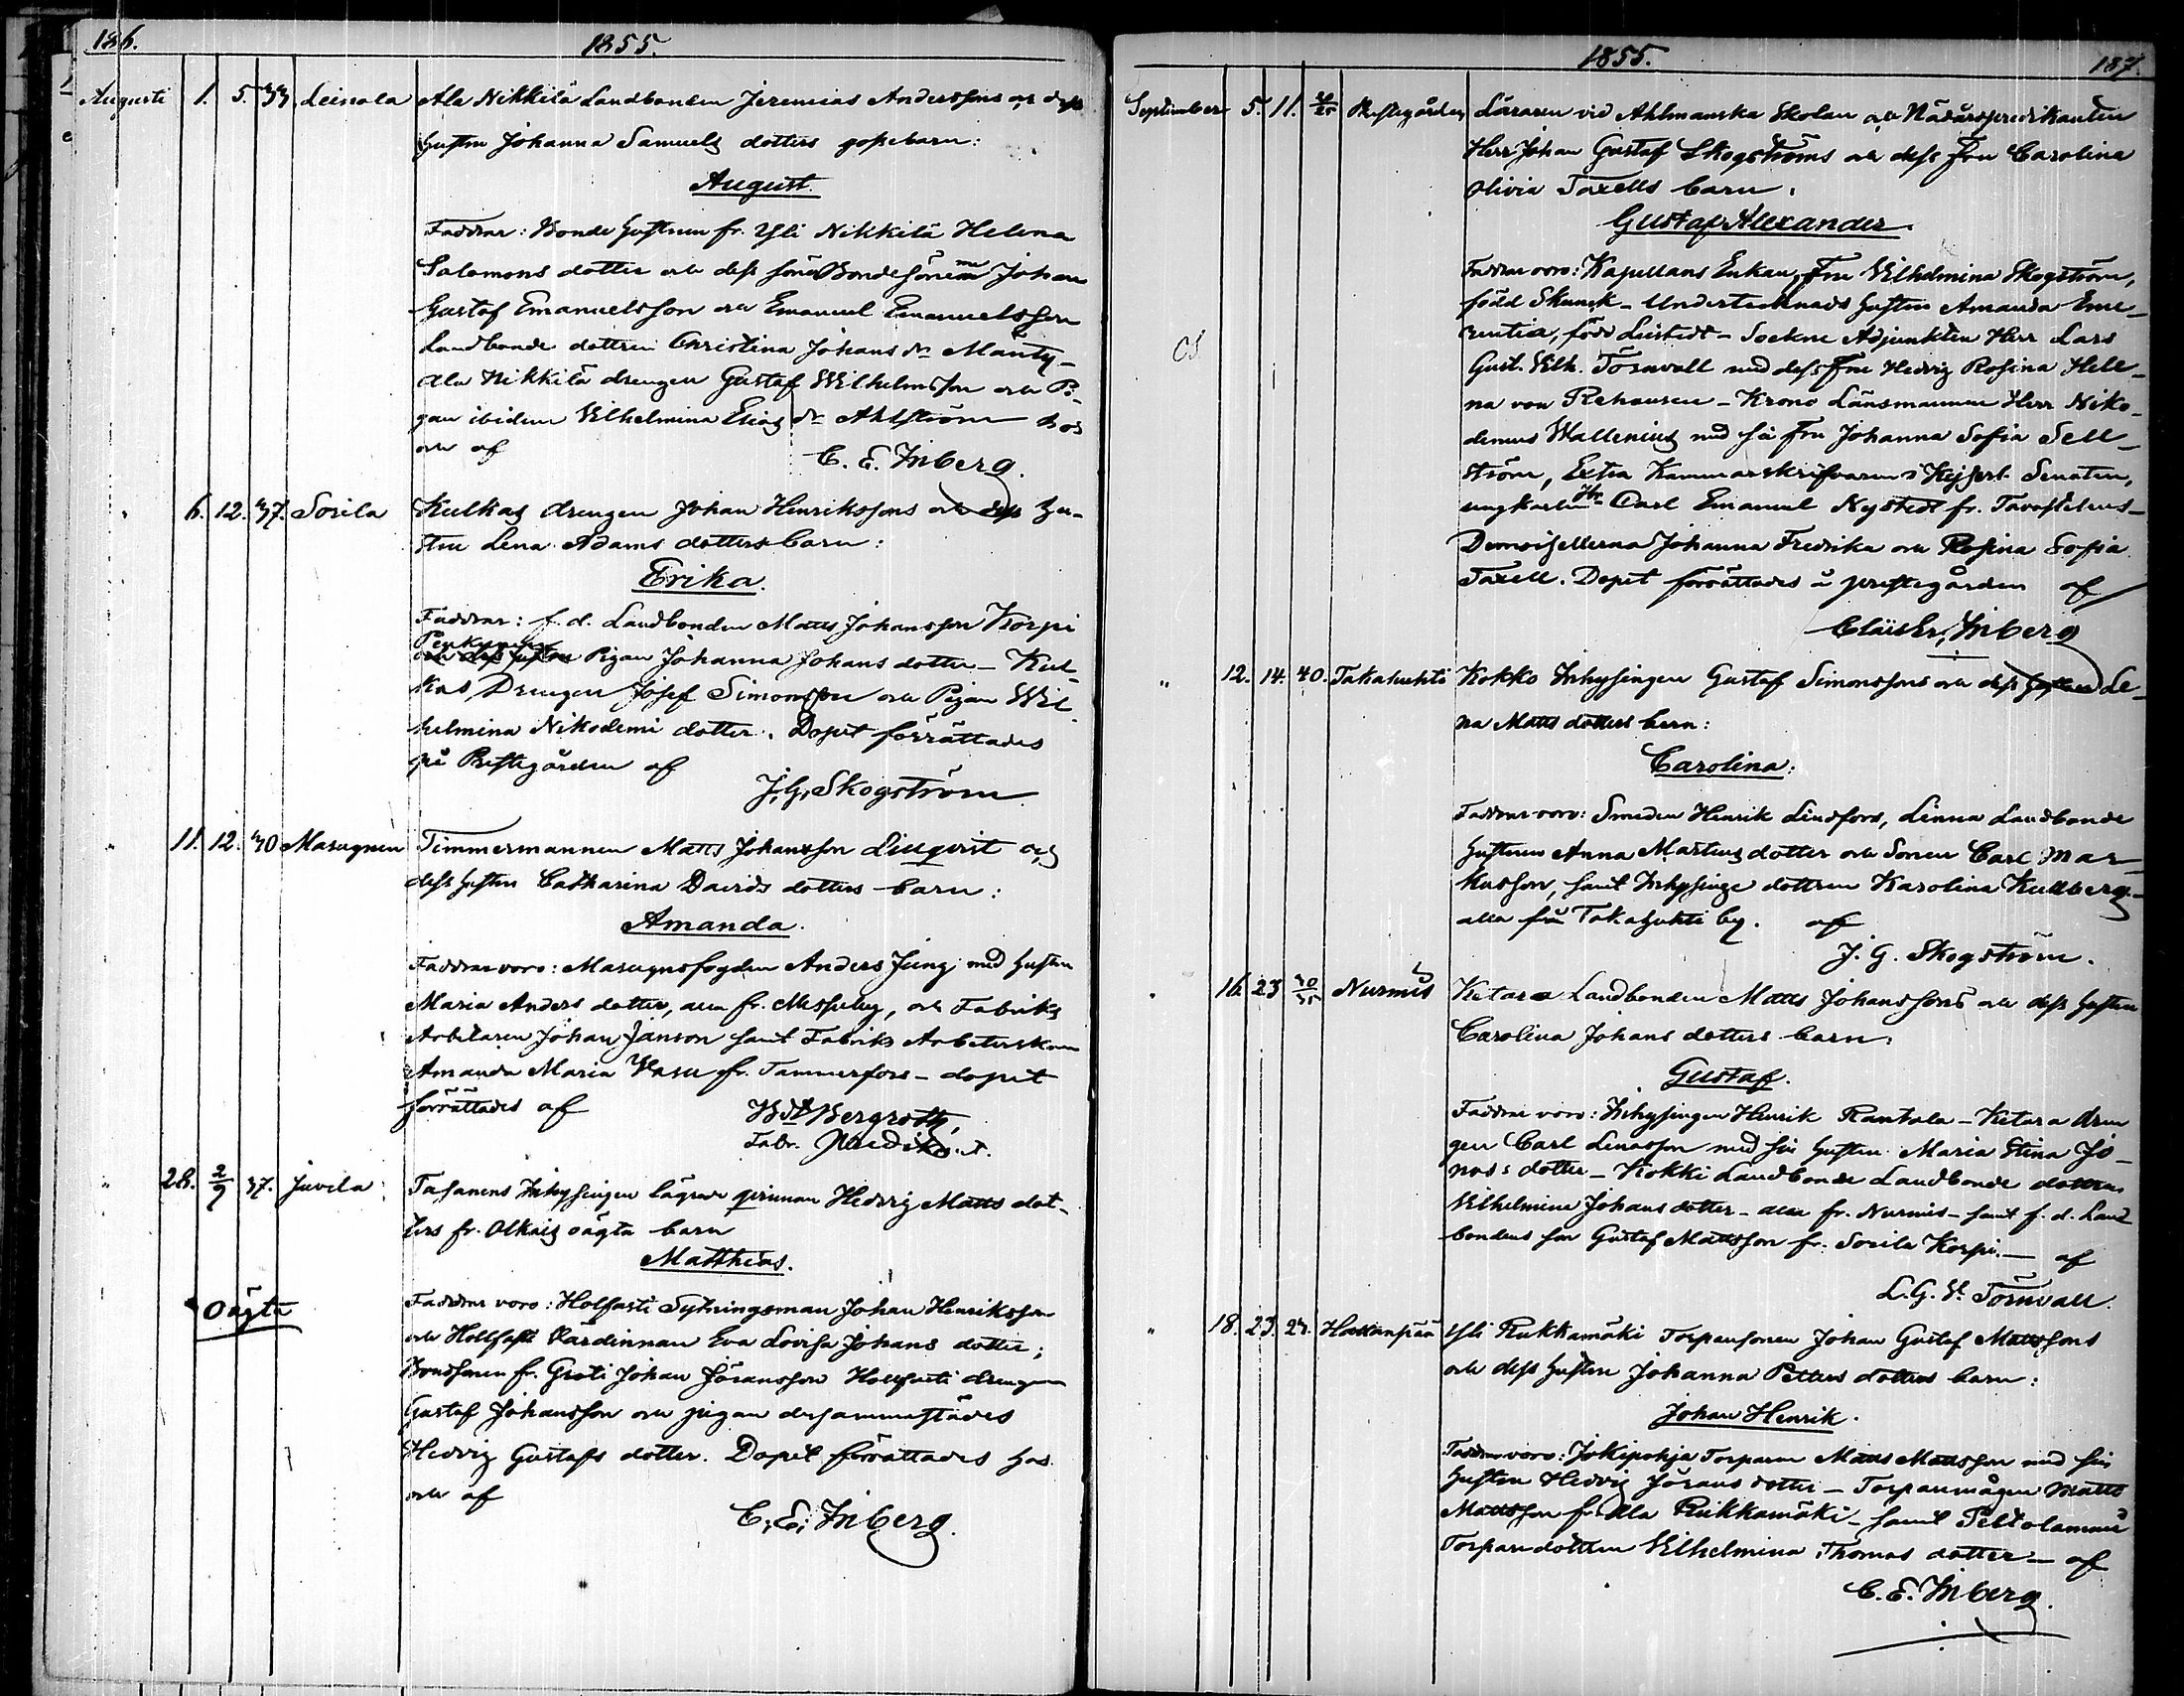 186.
1855.
Augusti 1. 5. 33 Leinola Ala Nikkilä Landbonden Jeremias Anderssons och dess
hustru Johanna Samuels dotters gossebarn:
August.
Faddrar: Bonde hustrun fr. Yli Nikkilä Helena
Salomons dotter och dess söner Johan
Gustaf Emanuelsson och Emanuel Emanuelsson
Landbonde dottren Christina Johans dr Mänty-
Ala Nikkilä drengen Gustaf Wilhelmsson och Pi-
gan ibidem Vilhelmina Elias dr Ahlström hos
och af
C. E. Inberg.
" 6. 12. 37. Sorila Kulkas drengen Johan Henrikssons och dess hu-
stru Lena Adams dotters barn:
Erika.
Faddrar: f. d. Landbonden Matts Johansson Korpi
Pigan Johanna Johans dotter - Kul-
kas Drengen Josef Simonsson och Pigan Wil-
helmina Nikodemi dotter. Dopet förrättades
på Prestegården af
J. G. Skogström
" 11. 12. 30 Masugnen Timmermannen Matts Johansson Linqvist och
dess hustru Catharina Davids dotters barn:
Amanda.
Faddrar voro: Masugnsfogden Anders Jung med hustru
Maria Anders dotter, och Fabriks
Arbetaren Johan Janson samt Fabriks Arbeterskan
Amanda Maria Vasu fr. Tammerfors - dopet
förrättades af
Bergroth,
Fabr. Predikt.
" 28. 2/9 37. Juvela Tasanens Inhysingen lägrade qvinnan Hedvig Matts dot-
ters fr. Olkais oägta barn
Matthias.
Oägta
Faddrar voro: Holfasti Sytningsman Johan Henriksson
och Hollfasti Värdinnan Eva Lovisa Johans dotter;
Bondsonen fr. Groti Johan Jöransson Hollfasti drengen
Gustaf Johansson och pigan dersammastädes
Hedvig Gustafs dotter. Dopet förrättades hos
och af
C. E. Inberg.
1855.
187.
September 5. 11. Prestegården Läraren vid Ahlmanska Skolan och Nådårspredikanten
Herr Johan Gustaf Skogströms och dess Fru Carolina
Olivia Taxells barn.
Gustaf Alexander.
Faddrar voro: Kapellans Enkan, Fru Vilhelmina Skogström,
född Skunck - Undertecknads hustru Amanda Eme-
rentia, född Listedt - Sockne Adjunkten Herr Lars
Gust. Vilh. Törnvall med dess Fru Hedvig Rosina Hele-
na von Rehausen - Krono Länsmannen Herr Niko-
demus Wallenius med sin Fru Johanna Sofia Sell-
ström, Extra Kammarskrifvaren i Kejserl. Senaten,
ungkarlen Hr Carl Emanuel Nystedt fr. Tavastehus -
Demoisellerna Johanna Fredrika och Rosina Sofia
Taxell. Dopet förrättades å prestegården af
Claës Er. Inberg
" 12. 14. 40. Takahuhti Kokko Inhysingen Gustaf Simonssons och dess hustru Le-
na Matts dotters barn:
Carolina:
Faddrar voro: Smeden Henrik Lindfors, Linna Landbonde
hustrun Anna Martins dotter och Sonen Carl Mar-
kusson, samt Inhysinge dottren Karolina Kullberg -
alla från Takahuhti by. af
J. G. Skogström.
" 16. 23 30/35 Nurmis Ketara Landbonden Matts Johanssons och dess hustru
Carolina Johans dotters barn:
Gustaf.
Faddrar voro: Inhysingen Henrik Rantala - Ketara dren
gen Carl Lenasson med sin hustru Maria Stina Jo-
nas dotter - Kokki Landbonde Landbonde dottren
Vilhelmina Johans dotter - alla fr. Nurmis - samt f. d. Land
bondens son Gustaf Mattsson fr. Sorila Korpi. - af
L. G. V. Törnvall.
" 18. 23. 27. Yli Rukkamäki Torparsonen Johan Gustaf Mattssons
och dess hustru Johanna Petters dotters barn:
Johan Henrik.
Faddrar voro: Jokipohja Torparen Matts Mattsson med sin
hustru Hedvig Jörans dotter - Torparmågen Matts
Mattsson fr. Ala Rukkamäki - samt
Torpare dottren Vilhelmina Thomas dotter - af
C. E. Inberg.